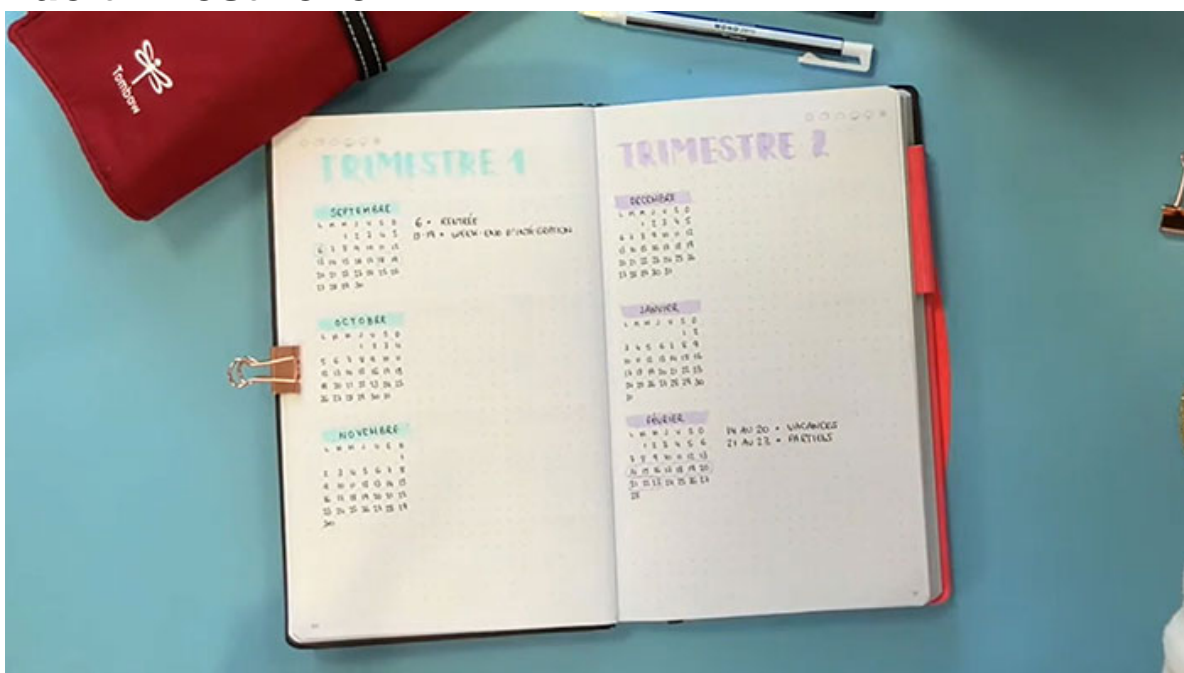 Tombow
MONO zero
TRIMESTRE 1
SEPTEMBRE
L M M J V S D
1 2 3 4 5
6 7 8 9 10 11 12
13 14 15 16 17 18 19
20 21 22 23 24 25 26
27 28 29 30
6 • RENTRÉE
• WEEK-END D'INTÉGRATION
OCTOBRE
L M M J V S D
1 2 3 4
5 6 7 8 9 10 11
12 13 14 15 16 17 18
19 20 21 22 23 24 25
26 27 28 29 30 31
NOVEMBRE
L M M J V S D
1
2 3 4 5 6 7 8
9 10 11 12 13 14 15
16 17 18 19 20 21 22
23 24 25 26 27 28 29
30
TRIMESTRE 2
DECEMBRE
L M M J V S D
1 2 3 4 5
6 7 8 9 10 11 12
13 14 15 16 17 18 19
20 21 22 23 24 25 26
27 28 29 30 31
JANVIER
L M M J V S D
1 2
3 4 5 6 7 8 9
10 11 12 13 14 15 16
17 18 19 20 21 22 23
24 25 26 27 28 29 30
31
FÉVRIER
L M M J V S D
1 2 3 4 5 6
7 8 9 10 11 12 13
14 15 16 17 18 19 20
21 22 23 24 25 26 27
28
14 AU 20 • VACANCES
21 AU 23 • PARTIELS